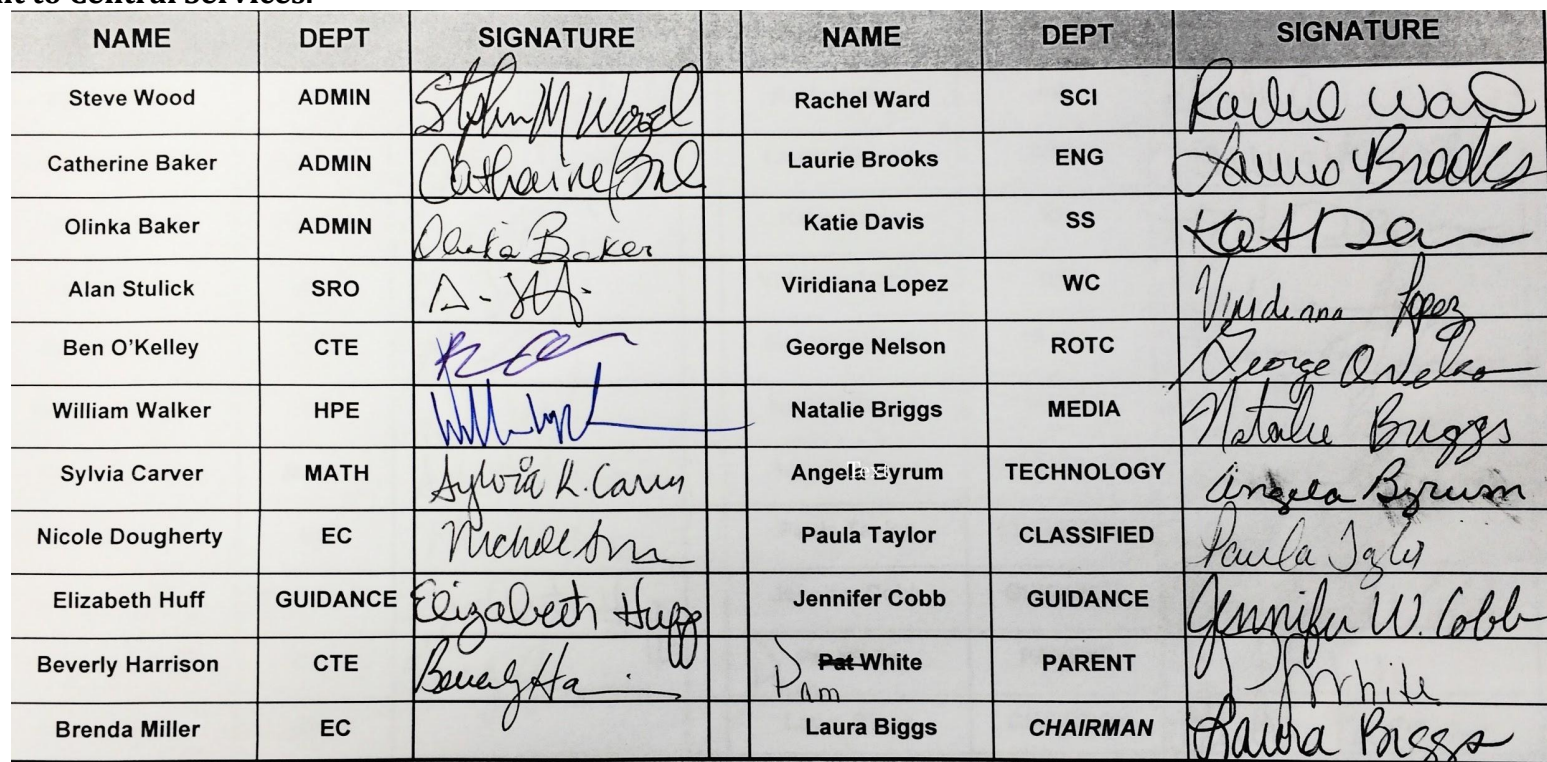 nt to Central Services.
NAME DEPT SIGNATURE NAME DEPT SIGNATURE
Steve Wood ADMIN Stephen M Wood Rachel Ward SCI Rachel Ward
Catherine Baker ADMIN Catharine Laurie Brooks ENG Laurie Brooks
Olinka Baker ADMIN Olinka Baker Katie Davis SS
Alan Stulick SRO Viridiana Lopez WC Viridiana Lopez
Ben O'Kelley CTE George Nelson ROTC George O Nelson
William Walker HPE Natalie Briggs MEDIA Natalie Briggs
Sylvia Carver MATH Sylvia R. Carver Angela Byrum TECHNOLOGY Angela Byrum
Nicole Dougherty EC Paula Taylor CLASSIFIED Paula Taylor
Elizabeth Huff GUIDANCE Elizabeth Huff Jennifer Cobb GUIDANCE Jennifer W. Cobb
Beverly Harrison CTE Beverly Pat White PARENT White
Pam
Brenda Miller EC Laura Biggs CHAIRMAN Laura Biggs